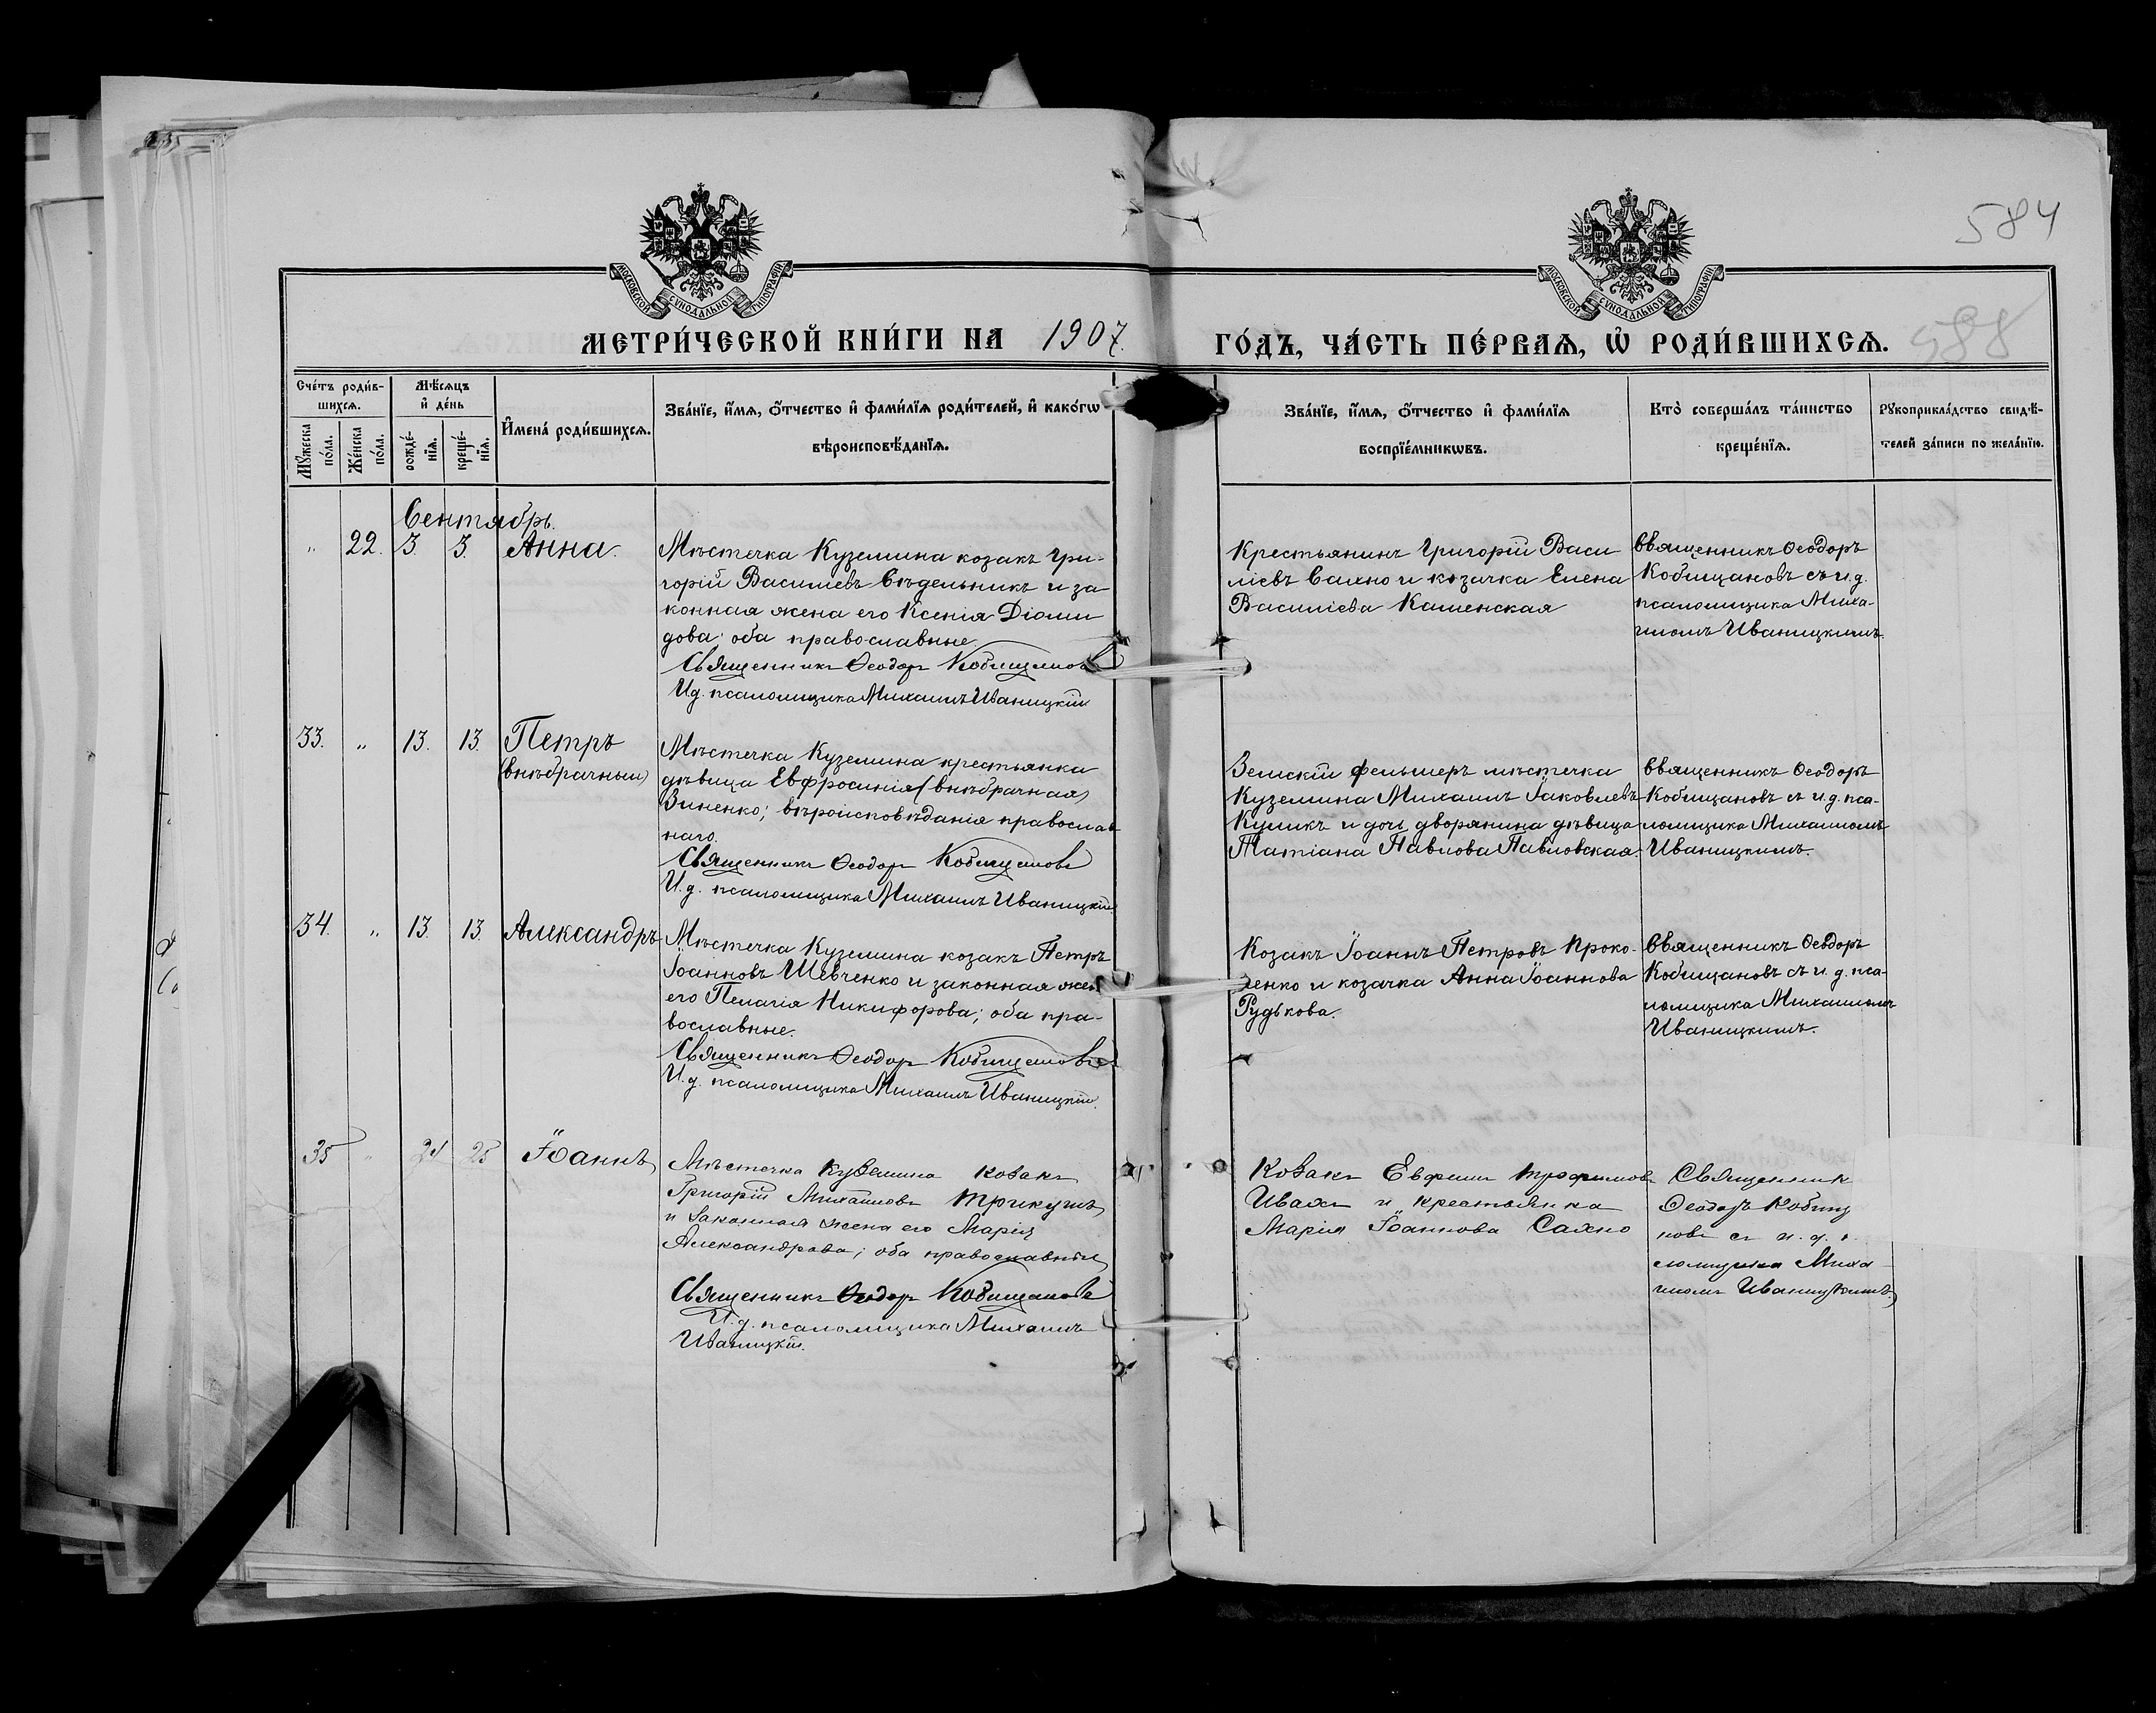 584
МОСКОВСКОЙ СѴНОДАЛЬНОЙ ТИПОГРАФІИ
МОСКОВСКОЙ СѴНОДАЛЬНОЙ ТИПОГРАФІИ
588
МЕТРИ́ЧЕСКОЙ КНИ́ГИ НА 1907. ГО́ДЪ, ЧА́СТЬ ПЕ́РВАѦ, Ѡ҆ РОДИ́ВШИХСѦ.
Сче́тъ роди́в-
шихсѧ.
Мꙋ́жеска по́ла.
Же́нска по́ла.
Мѣ́сѧцъ
и҆ де́нь
рожде́-
нїѧ.
креще́-
нїѧ.
И҆мена̀ роди́вшихсѧ.
Зва́нїе, и҆́мѧ, ѻ҆́тчество и҆ фами́лїѧ роди́телей, и҆ како́гѡ
вѣроисповѣ́данїѧ.
Зва́нїе, и҆́мѧ, ѻ҆́тчество и҆ фами́лїѧ
воспрїе́мникѡвъ.
Кто̀ соверша́лъ та́инство
креще́нїѧ.
Рꙋкоприкла́дство свидѣ́-
телей за́писи по жела́нїю.
Сентябрь.
" 22. 3. 3. Анна.
Мѣстечка Куземина козакъ Гри-
горій Василіевъ Сѣдельникъ и за
конная жена его Ксенія Діоми
дова; оба православные
Священникъ Ѳеодоръ Кобищановъ
И.д. псаломщика Михаилъ Иваницкій
Крестьянинъ Григорій Васи
ліевъ Сахно и козачка Елена
Василіева Каменская
Священникъ Ѳеодоръ
Кобищановъ съ и.д.
псаломщика Миха-
иломъ Иваницкимъ.
33. " 13. 13. Петръ
(внѣбрачный)
Мѣстечка Куземина крестьянка
дѣвица Евфросинія (внѣбрачная)
Зиненко; вѣроисповѣданія православ
наго.
Священникъ Ѳеодоръ Кобищановъ
И.д. псаломщика Михаилъ Иваницкій.
Земскій фельшеръ мѣстечка
Куземина Михаилъ Іаковлевъ
Куликъ и дочь дворянина дѣвица
Татіана Павлова Павловская.
Священникъ Ѳеодоръ
Кобищановъ съ и.д. пса-
ломщика Михаиломъ
Иваницкимъ.
34. " 13. 13. Александръ
Мѣстечка Куземина козакъ Петръ
Іоанновъ Шевченко и законная жена
его Пелагія Никифорова; оба пра-
вославные.
Священникъ Ѳеодоръ Кобищановъ
И.д. псаломщика Михаилъ Иваницкій.
Козакъ Іоаннъ Петровъ Проко-
пенко и козачка Анна Іоаннова
Рудькова.
Священникъ Ѳеодоръ
Кобищановъ съ и.д. пса-
ломщика Михаиломъ
Иваницкимъ.
35 " 25 Іоаннъ
Мѣстечка Куземина козакъ
Григорій Михаиловъ Трикушъ
и законная жена его Марія
Александрова; оба православные
Священникъ Ѳеодоръ Кобищановъ
И.д. псаломщика Михаилъ
Иваницкій.
Козакъ Евфимъ Трофимовъ
Ивахъ и крестьянка
Марія Іоаннова Сахно
Священник
Ѳеодоръ Кобищ
новъ съ и.д.
ломщика Миха
иломъ Иваницкимъ.